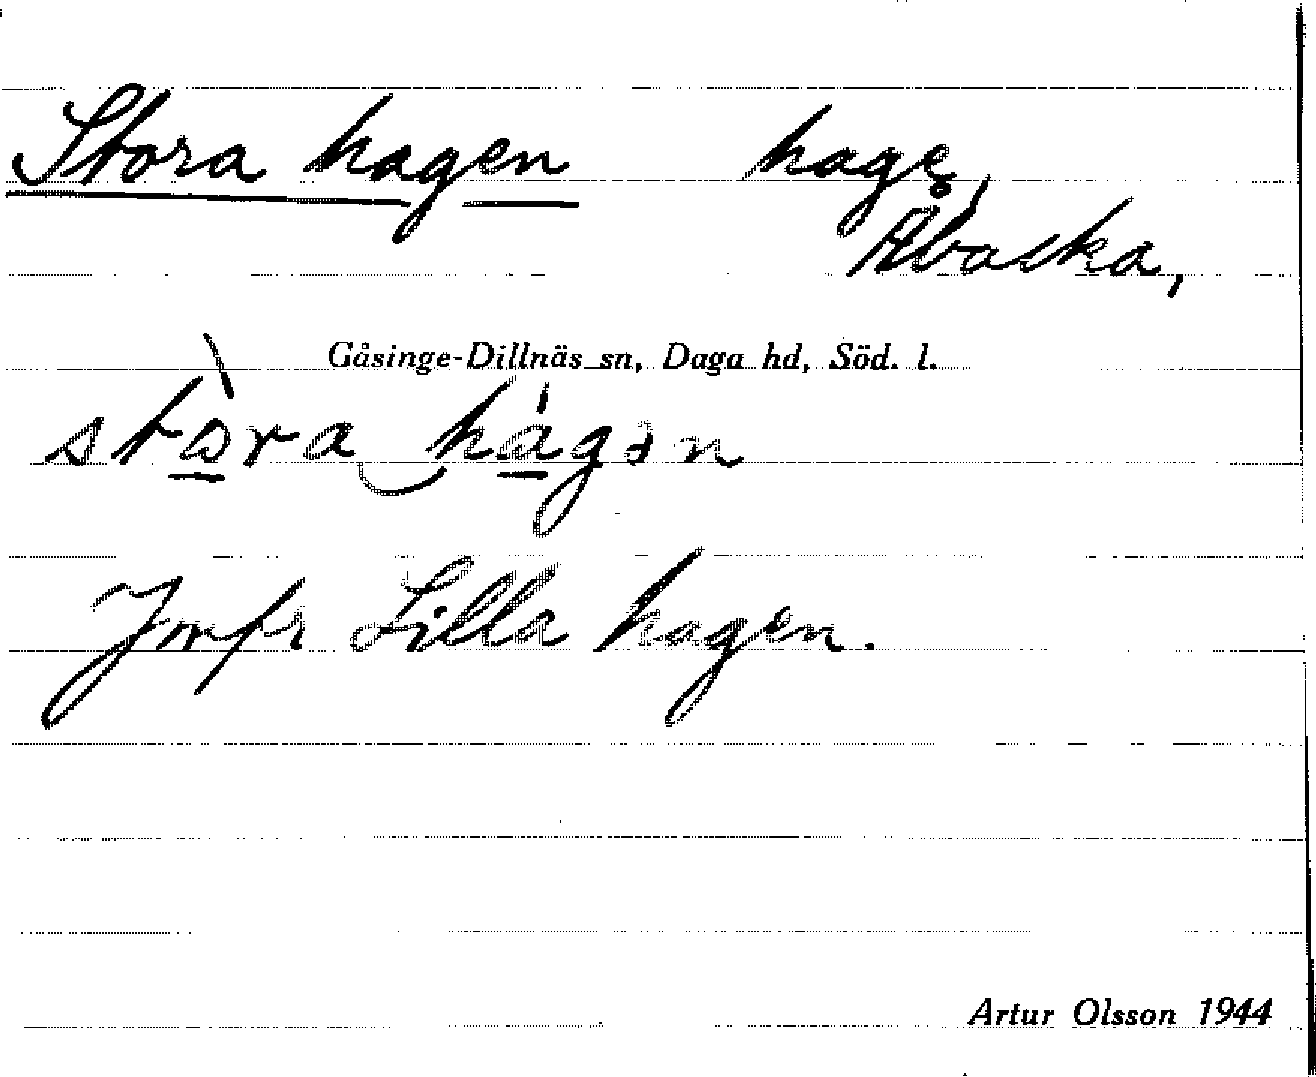 Stora hagen hage,
Åvaska,
Gåsinge-Dillnäs sn, Daga hd, Söd. l.
stò̱ra‿há̱gən
Jmfr Lilla hagen.
Artur Olsson 1944